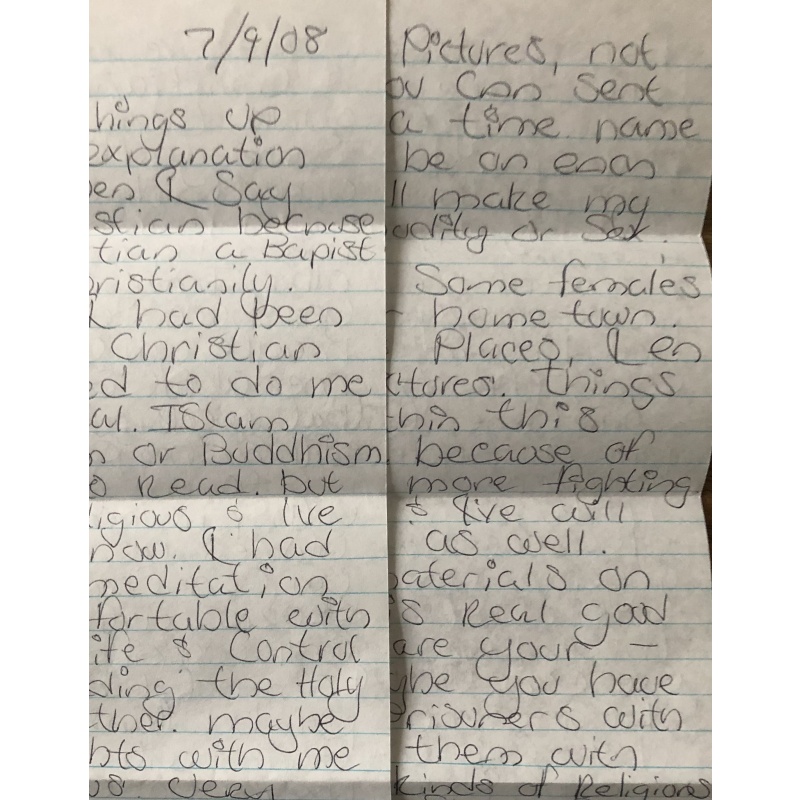 7/9/08
hings up
explanation
en I Say
stian because
tian a Bapist
ristianily.
I had been
Christian
ed to do me
al. ISlam
n or Buddhism
o Read. but
igious & Ive
now. I had
meditation
fortable with
ife & Control
ding the Holy
ther. maybe
hts with me
us. Very
Pictures, not
ou Can Sent
a time name
be an
ll make my
udity or Sex.
Some females
- home town.
Places, I en
ctures. things
thin this
because of
more fighting
& five will
as well.
aterials on
s Real good
are your -
ybe you have
risoners with
them with
kinds of Religions